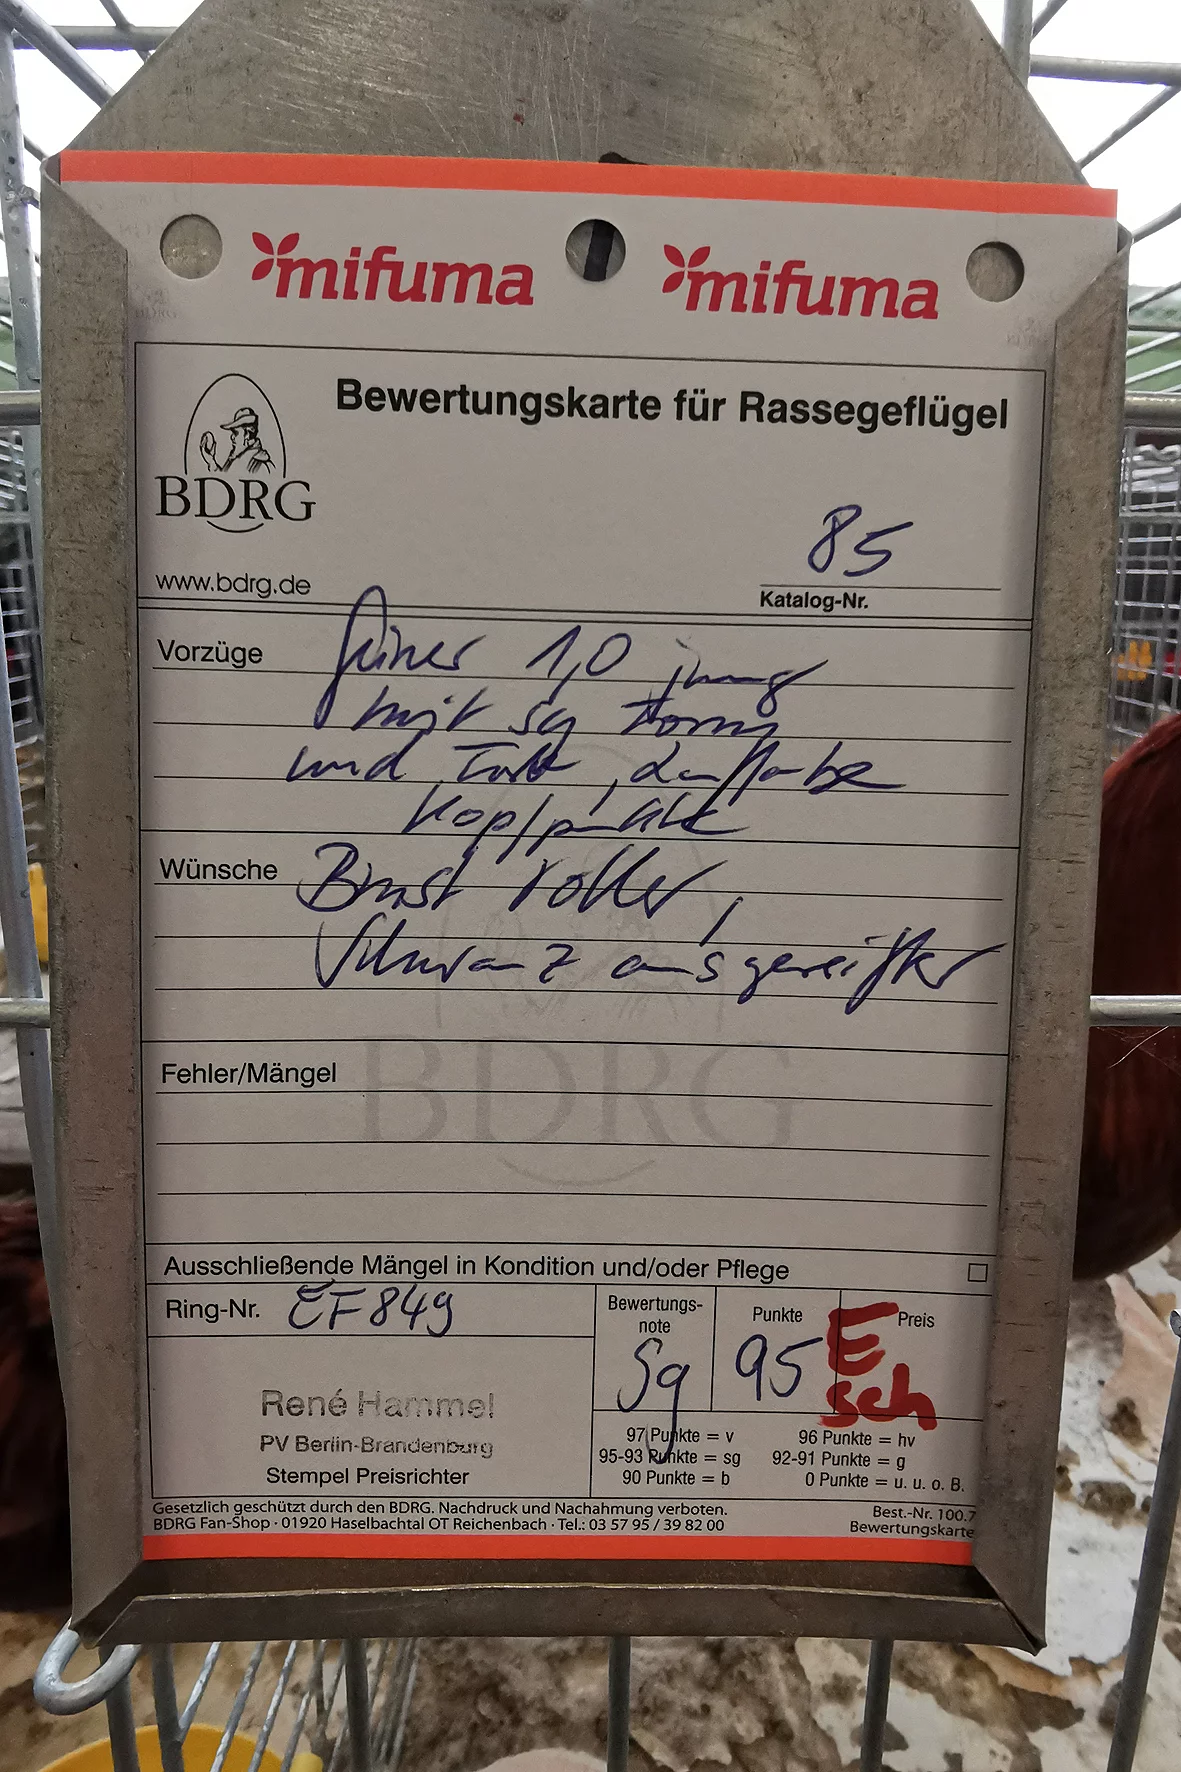 mifuma mifuma
Bewertungskarte für Rassegeflügel
BDRG
www.bdrg.de
85
Katalog-Nr.
Vorzüge feiner 1,0 jung
mit sg Form
und Farbe, Lauffarbe
Kopfpunkte
Wünsche Brust voller,
Schwanz ausgereifter
BDRG
Fehler/Mängel
Ausschließende Mängel in Kondition und/oder Pflege
Ring-Nr. EF849
Bewertungs-
note
Sg
Punkte
95
Preis
E
sch
René Hammel
PV Berlin-Brandenburg
Stempel Preisrichter
97 Punkte = v 96 Punkte = hv
95-93 Punkte = sg 92-91 Punkte = g
90 Punkte = b 0 Punkte = u. u. o. B.
Gesetzlich geschützt durch den BDRG. Nachdruck und Nachahmung verboten. Best.-Nr. 100.7
BDRG Fan-Shop · 01920 Haselbachtal OT Reichenbach · Tel.: 03 57 95 / 39 82 00 Bewertungskarte